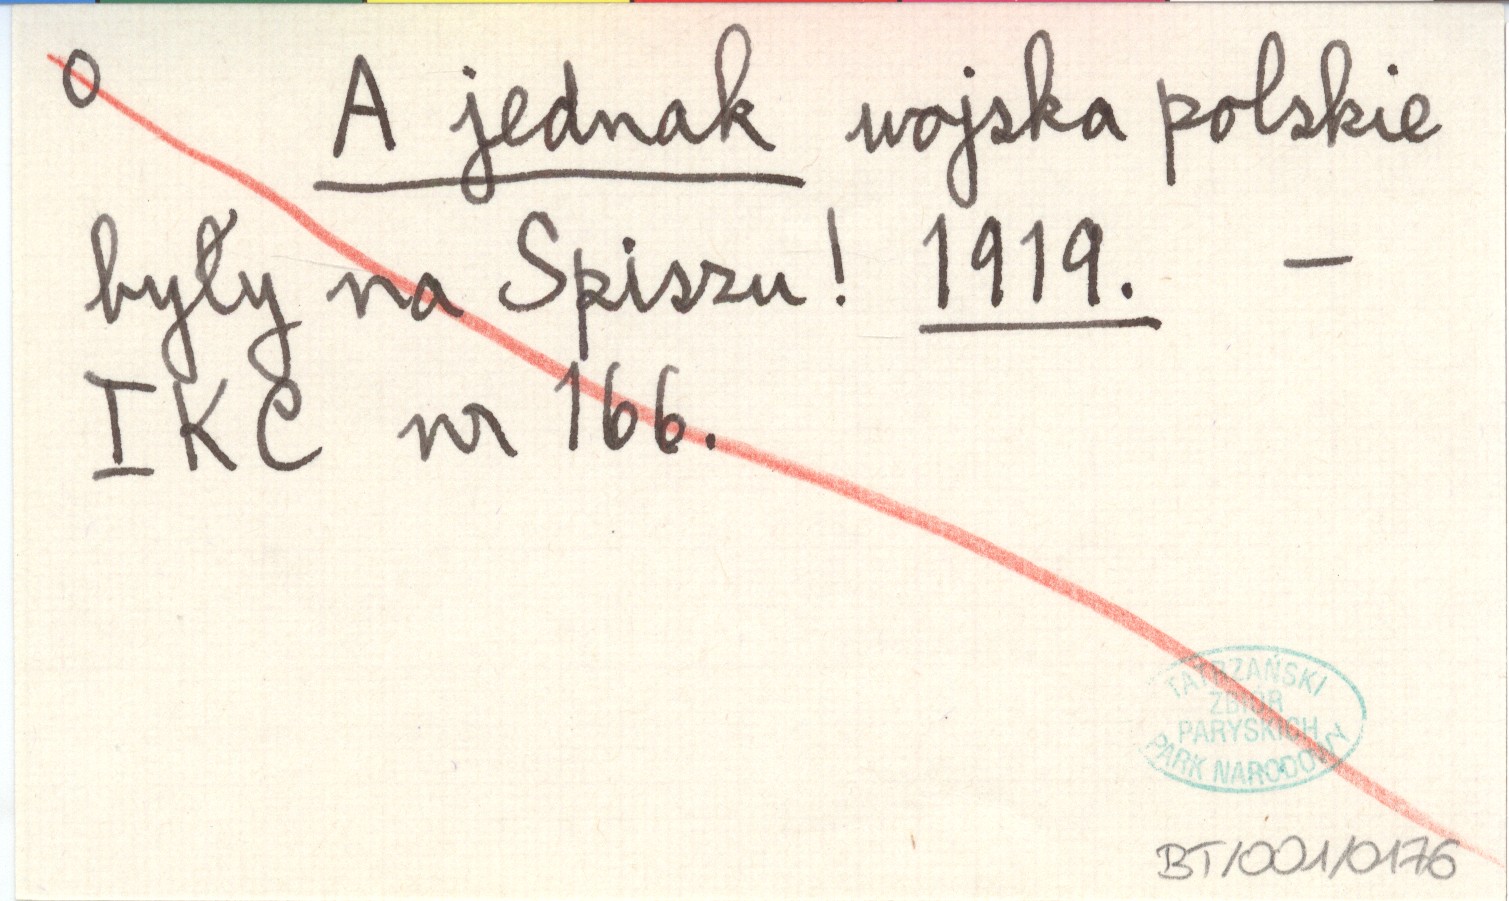 O A jednak wojska polskie
były na Spiszu! 1919. —
IKC nr 166.
TATRZAŃSKI
ZBIÓR
PARYSKICH
PARK NARODOWY
BT/001/0176